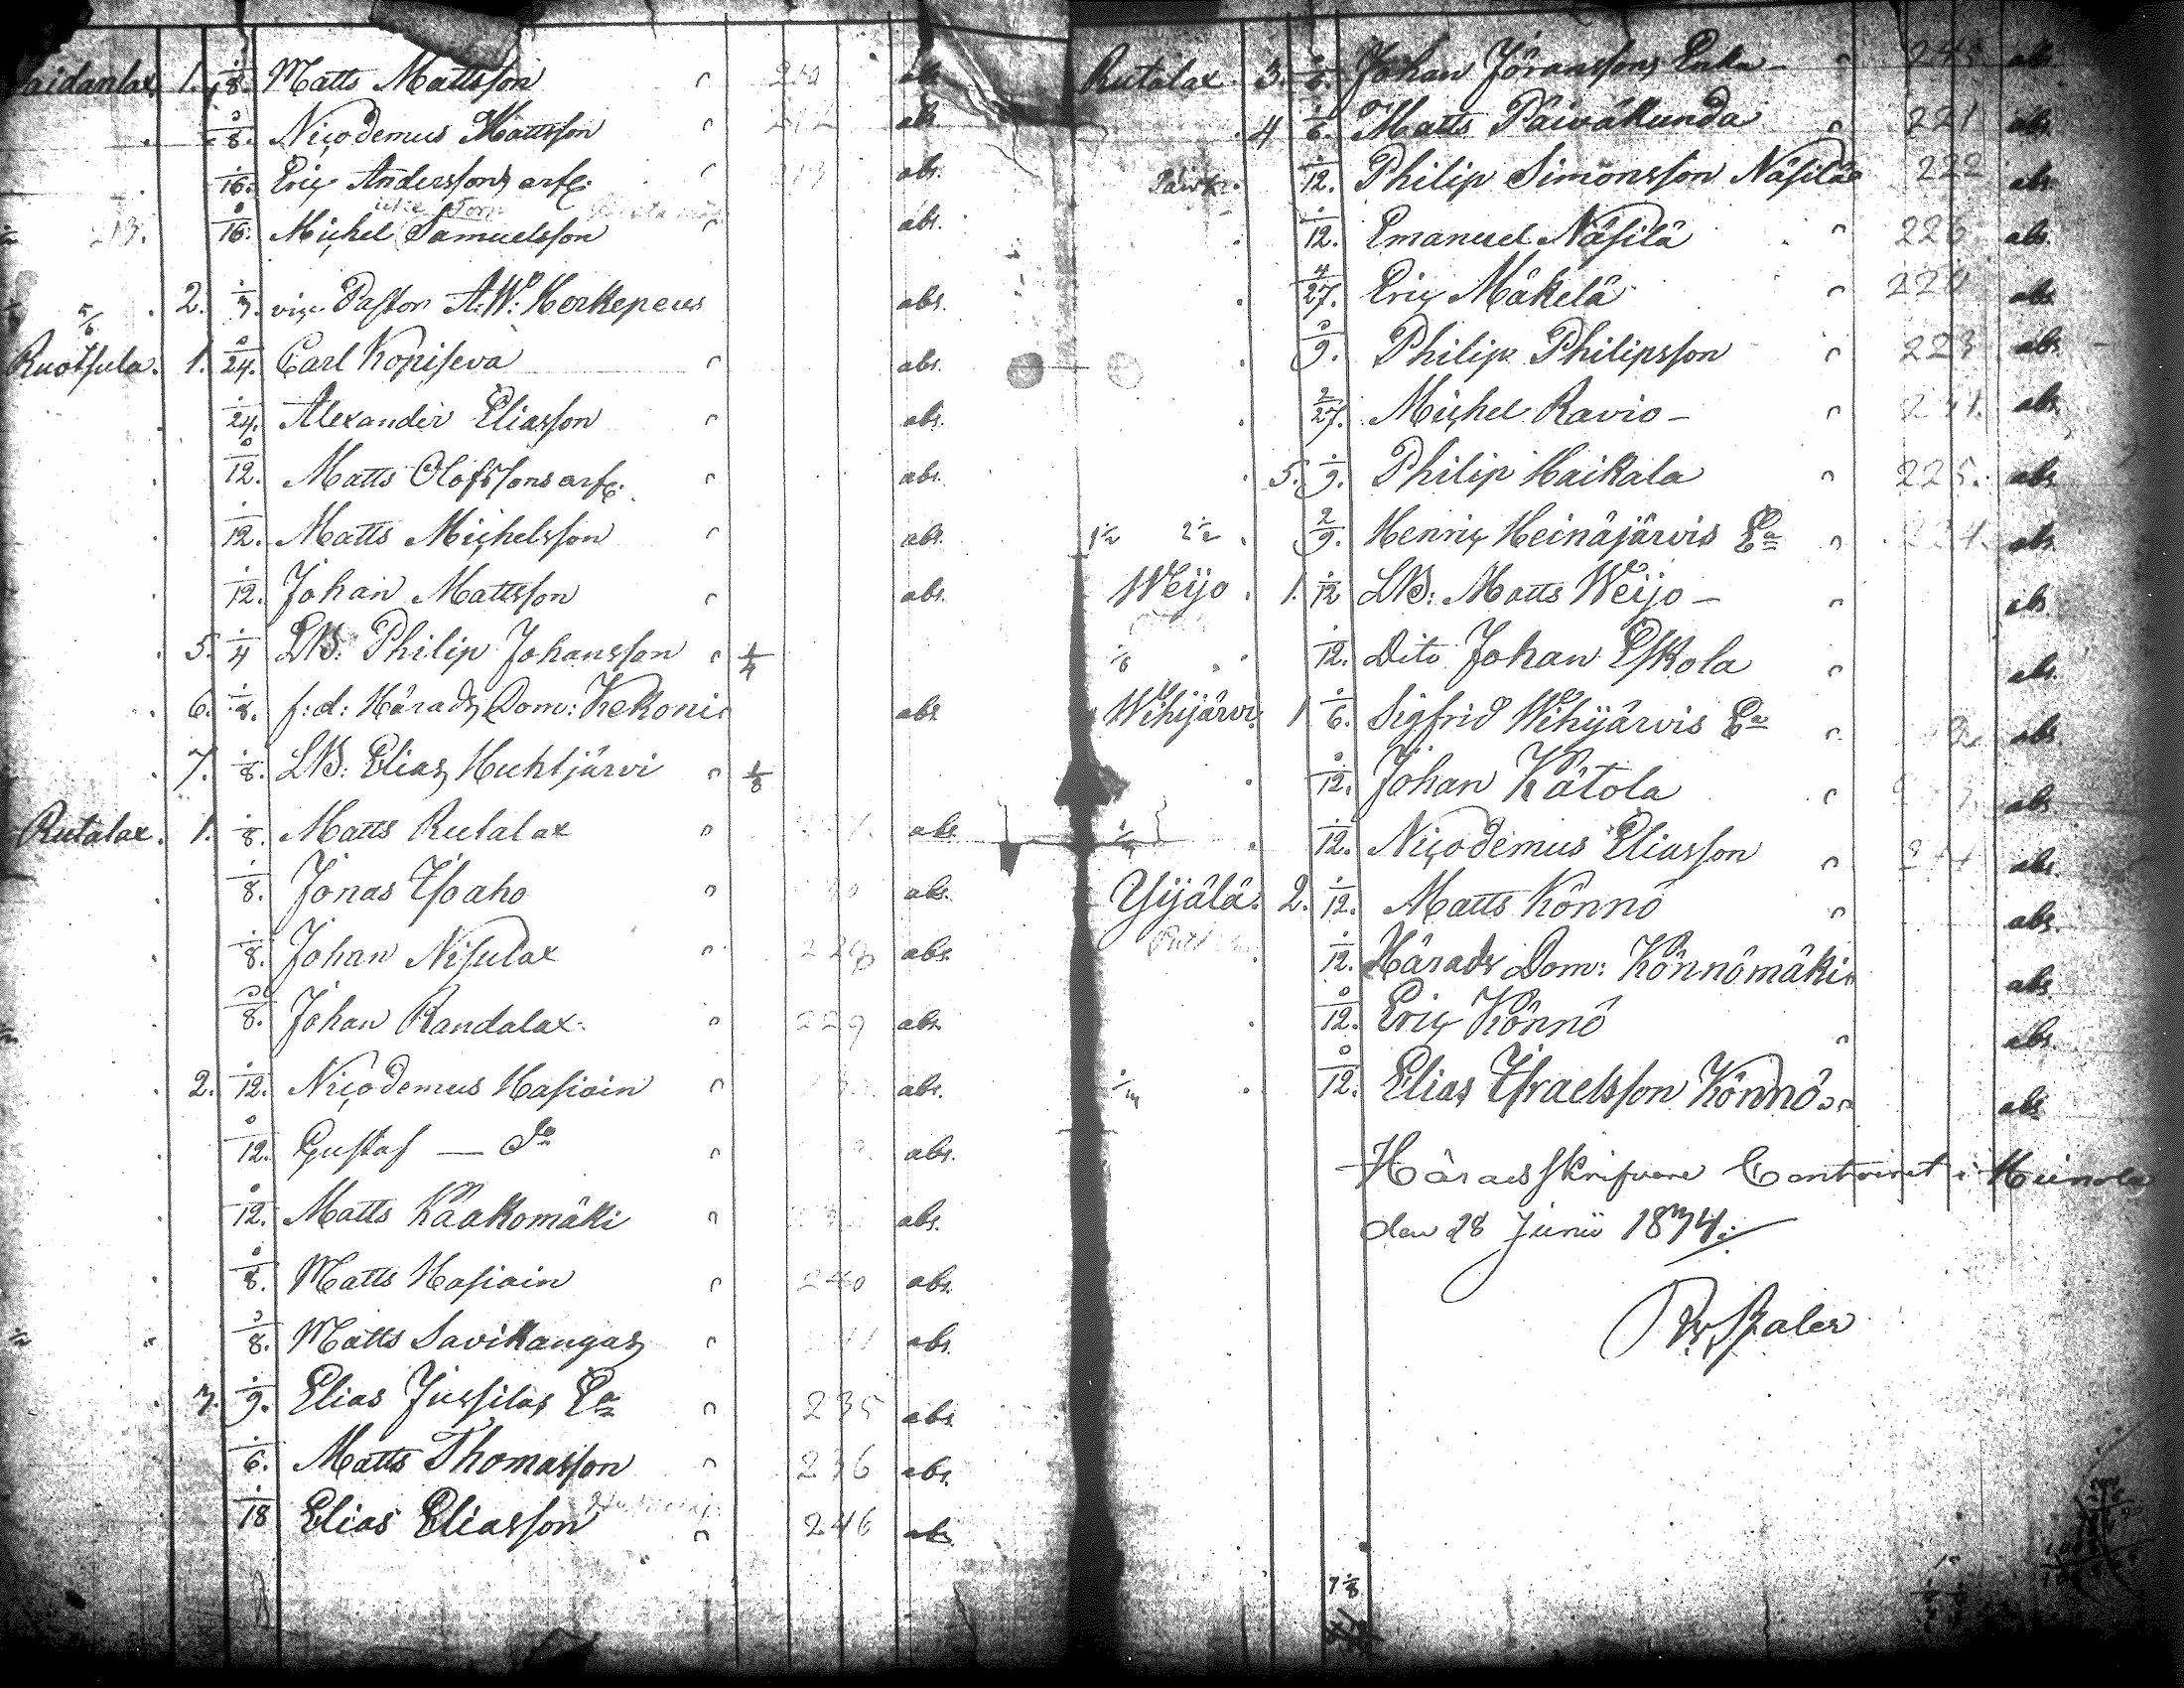 1. 1/8. Matts Mattsson " 210 abs.
1/8. Nicodemus Mattsson " 212 abs.
1/16. Eric Anderssons arfg. " 213 abs.
213. 1/16. Michel Samuelsson " abs.
2. vice Pastor A. W. Herkepeus abs.
Ruotsula. 1. 1/24. Carl Kopiseva " abs.
1/24. Alexander Eliasson " abs.
1/12. Matts Olofssons arfg. " abs.
1/12. Matts Michelsson " abs.
1/12. Johan Mattsson " abs.
5. 1/4 LB: Philip Johansson " 1/4
6. 1/8. f: d: Härads Dom: Kekoni abs.
7. 1/8. LB: Elias Huhtjärvi " 1/8
Rutalax. 1. 1/8. Matts Rutalax " abs.
1/8. Jonas Ysaho " abs.
1/8. Johan Nisulax " 228 abs.
1/8. Johan Randalax " 229 abs.
2. 1/12. Nicodemus Hasiain " abs.
1/12. Gustaf — Do " abs.
1/12. Matts Kaakomäki " abs.
1/8. Matts Hasiain " 240 abs.
1/8. Matts Savikangas " abs.
3. 1/9. Elias Jussilas Ea " 235 abs.
1/6. Matts Thomasson " 236 abs.
1/18 Elias Eliasson " 246 abs.
Rutalax 3. 1/6. Johan Jöranssons Enka " 245 abs.
4 1/6. Matts Päiväkunda " 221 abs.
1/12. Philip Simonsson Näsilä 222 abs.
1/12. Emanuel Näsilä " 226 abs.
4/27. Eric Mäkelä " 220 abs.
1/9. Philip Philipsson " 223 abs.
2/27. Michel Ravio — " 241. abs.
5. 1/9. Philip Haikala " 225. abs.
1 1/2 2 1/2 2/9. Henric Heinäjärvis Ea " 224. abs.
Weijo. 1. 1/12 LB: Matts Weijo — " abs.
1/6 1/12. Dito Johan Eskola " abs.
Wihijärvi. 1 1/6. Sigfrid Wihijärvis Ea " abs.
1/12. Johan Kätola " abs.
1/12. Nicodemus Eliasson " abs.
Yijälä. 2. 1/12. Matts Könnö " abs.
1/12. Härads Dom: Könnömäki " abs.
1/12. Eric Könnö " abs.
1/12. Elias Israelsson Könnö " abs.
Häradsskrifvare Contoiret i Heinola
den 28 Junii 1874.